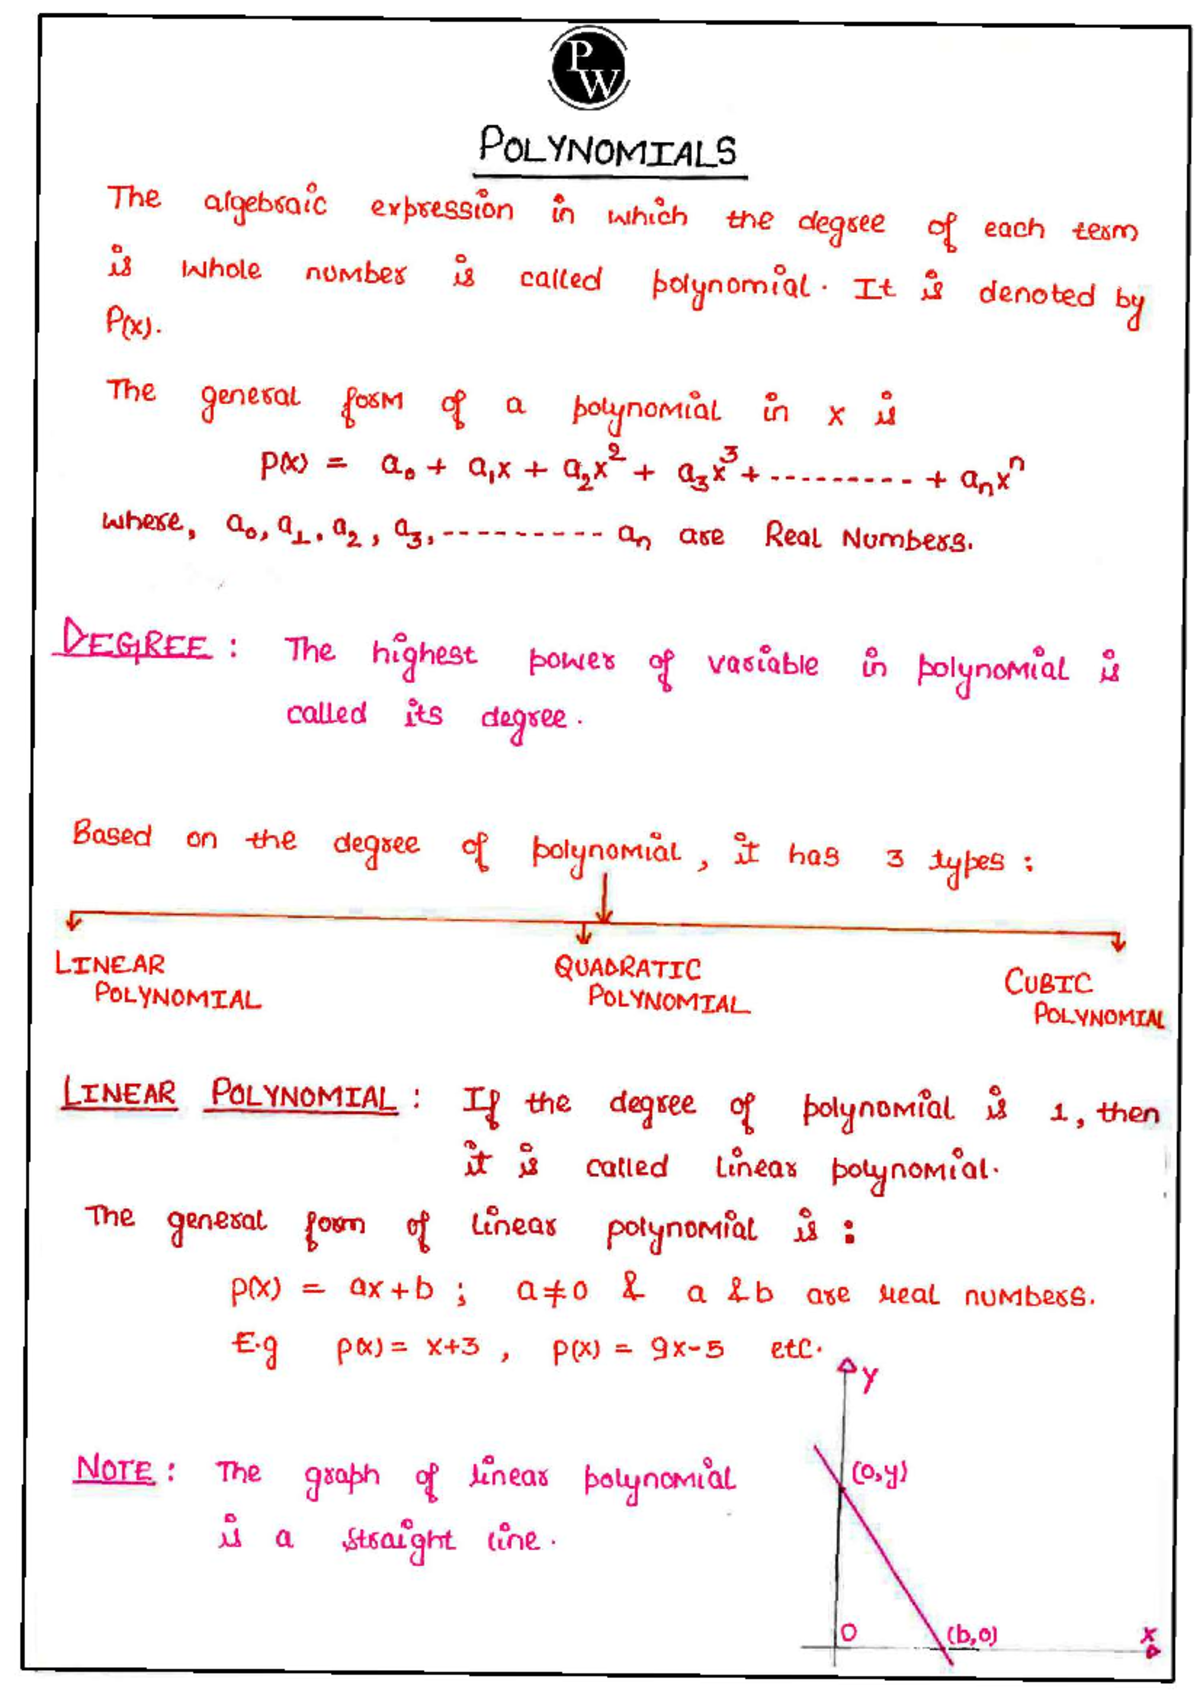 PW
POLYNOMIALS
The algebraic expression in which the degree of each term
is whole number is called polynomial. It is denoted by
P(x).
The general form of a polynomial in x is
P(x) = a₀ + a₁x + a₂x² + a₃x³ + --------- + aₙxⁿ
where, a₀, a₁, a₂, a₃, ---------- aₙ are Real Numbers.
DEGREE : The highest power of variable in polynomial is
called its degree.
Based on the degree of polynomial, it has 3 types :
LINEAR POLYNOMIAL
QUADRATIC POLYNOMIAL
CUBIC POLYNOMIAL
LINEAR POLYNOMIAL : If the degree of polynomial is 1, then
it is called linear polynomial.
The general form of linear polynomial is :
p(x) = ax+b ; a≠0 & a &b are real numbers.
E.g p(x) = x+3 , p(x) = 9x-5 etc.
NOTE : The graph of linear polynomial
is a straight line.
Y
(0,y)
O
(b,0)
X